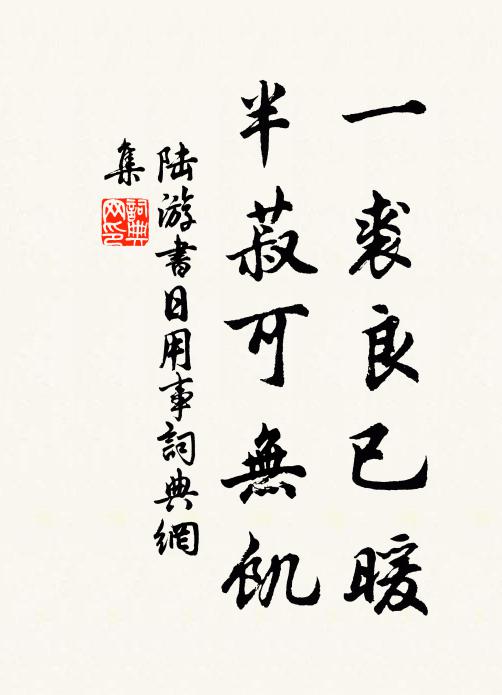 一裘良已暖
半菽可無飢
陸游書日用事詞典網
集
詞典
网印